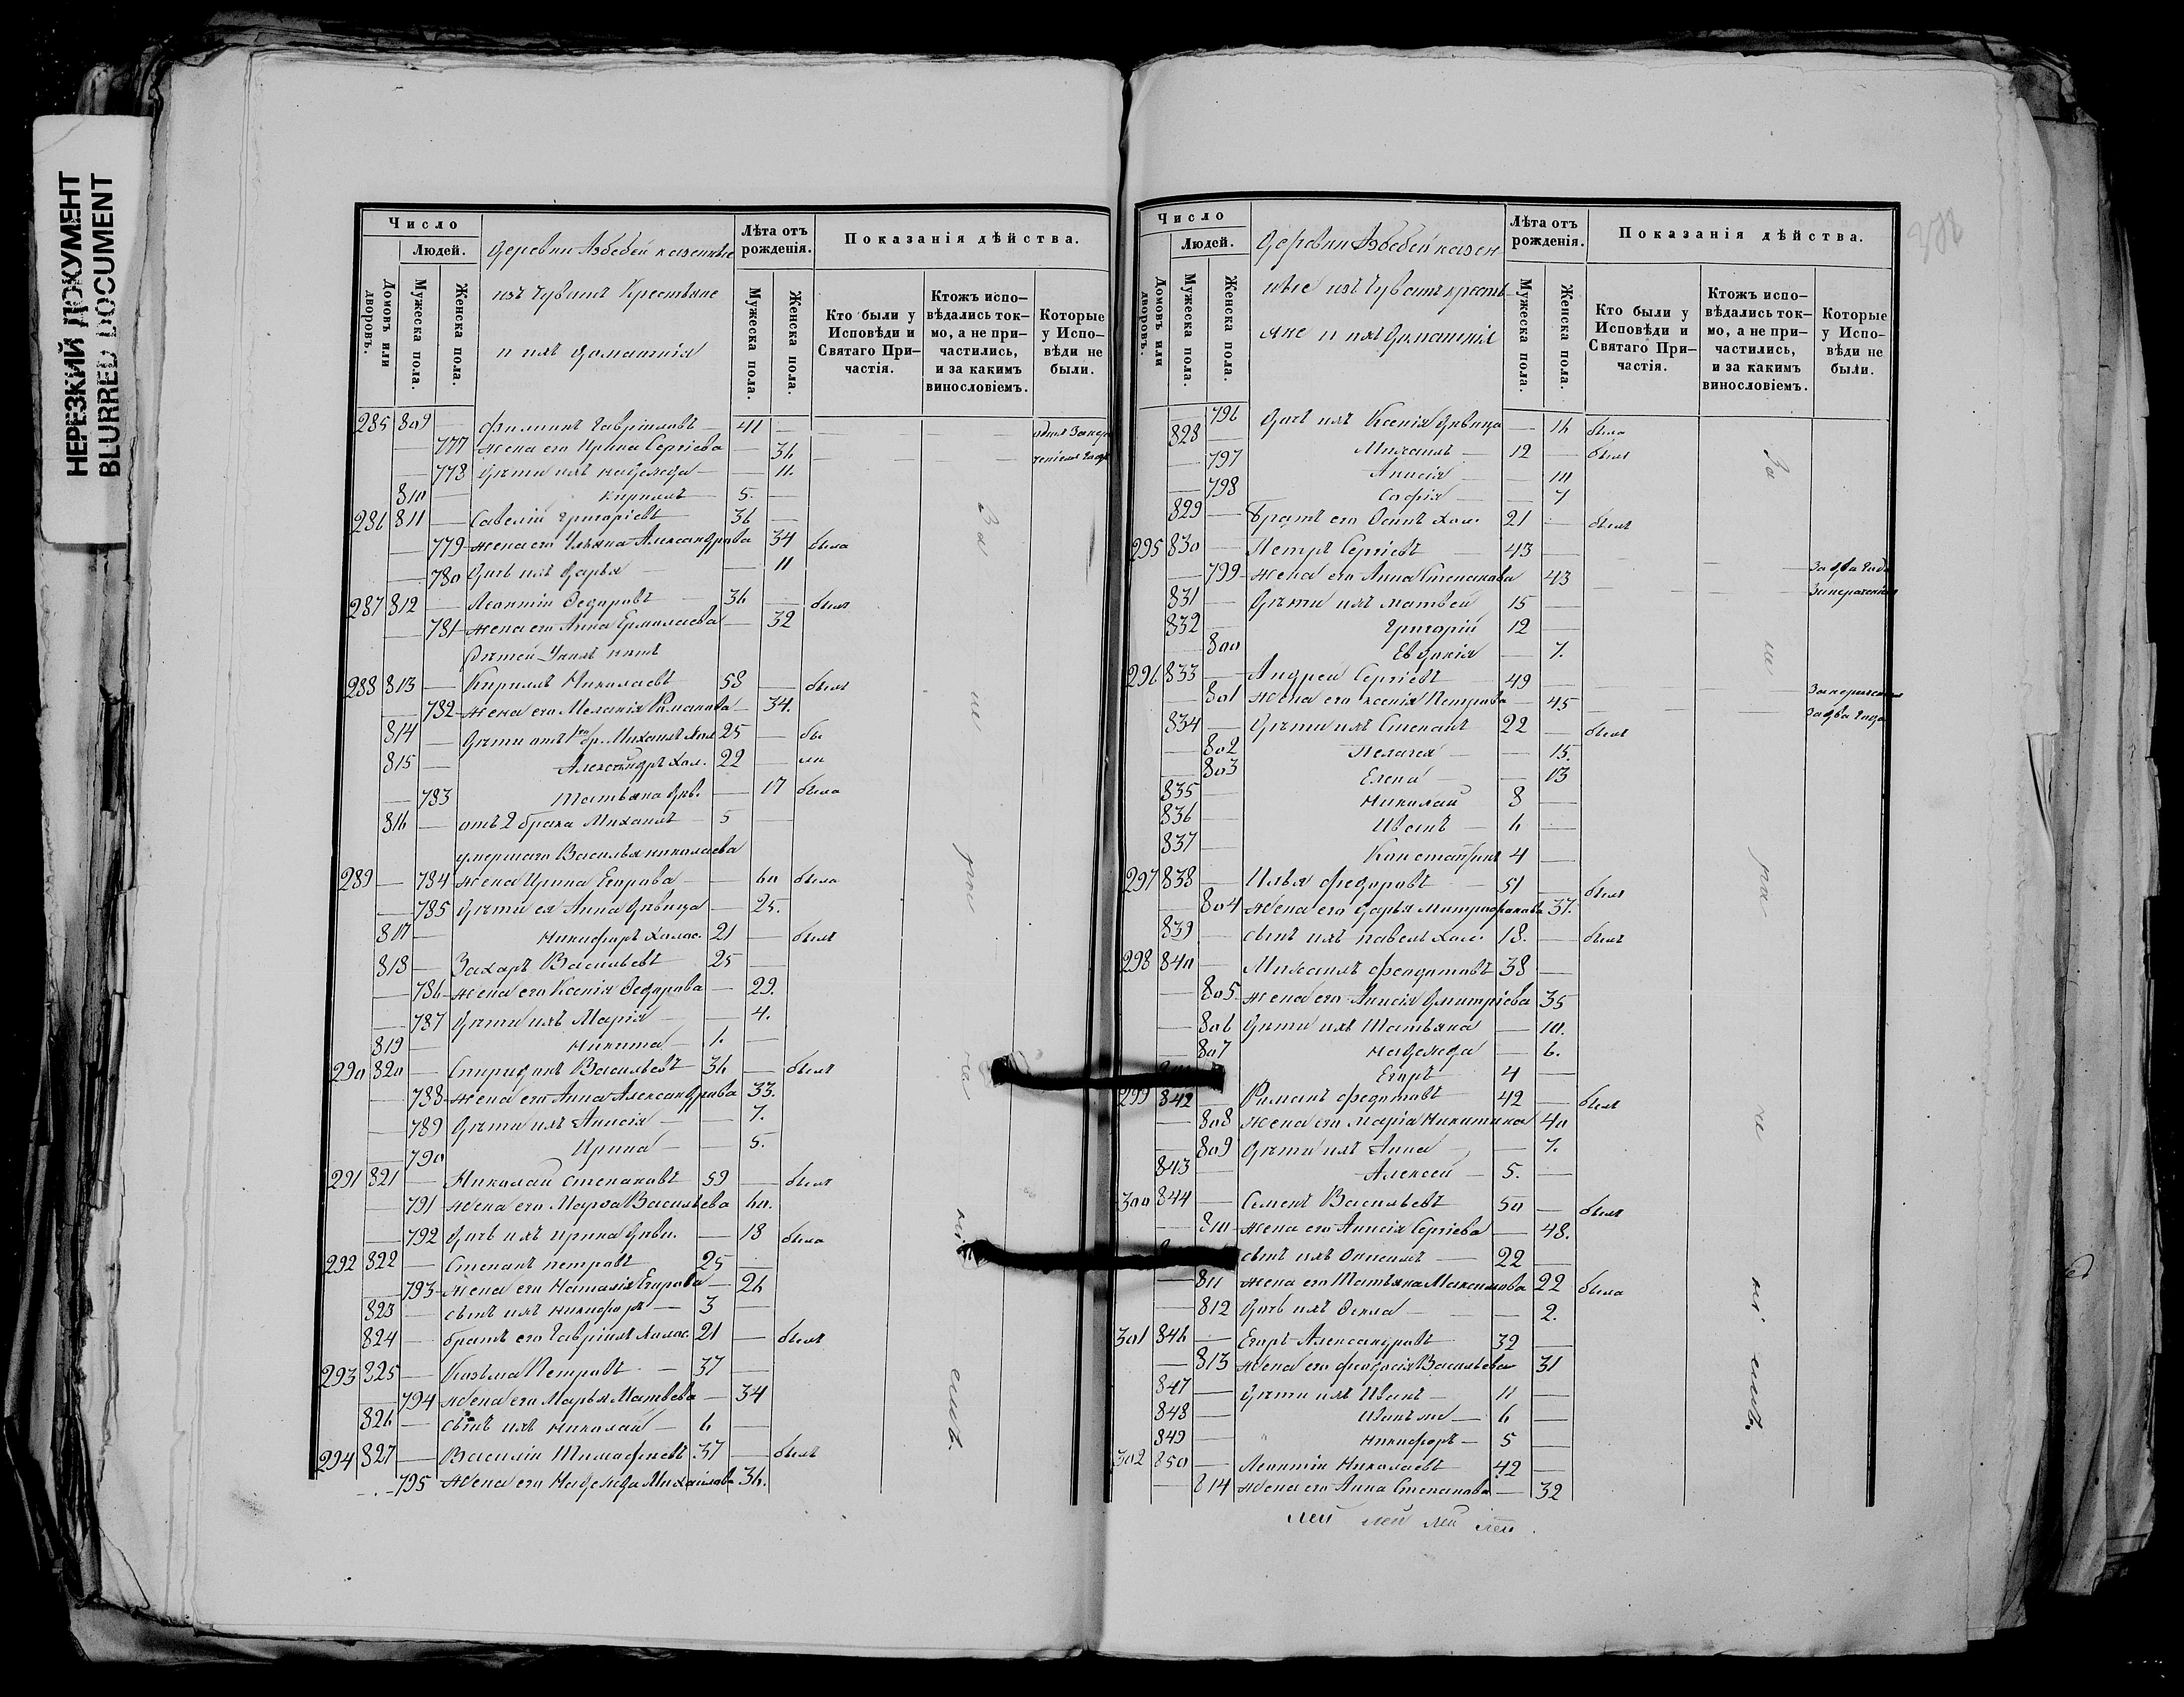 НЕРЕЗКИЙ ДОКУМЕНТ
BLURRED DOCUMENT
Число
Людей.
Домовъ или дворовъ.
Мужеска пола.
Женска пола.
Деревни Азбебей казенные
изъ чувашъ крестьяне
и ихъ домашнія
Лѣта отъ рожденія.
Мужеска пола.
Женска пола.
Показанія дѣйства.
Кто были у Исповѣди и Святаго Причастія.
Ктожъ исповѣдались токмо, а не причастились, и за какимъ винословіемъ.
Которые у Исповѣди не были.
285 809 — Филиппъ Гавріиловъ — 41 —
— 777 жена его Ирина Сергіева — 36
— 778 дѣти ихъ Надежда — 11.
810 — Кириллъ 5. —
286 811 — Савелій Григорьевъ 36 —
— 779 жена его Ульяна Александрова 34 была
— 780 дочь ихъ Дарья — 11
287 812 — Леонтій Ѳедоровъ 36 — былъ
— 781 жена его Анна Ермолаева — 32
дѣтей у нихъ нѣтъ
288 813 — Кириллъ Николаевъ 58 — былъ
— 782 жена его Меланія Романова — 34.
814 — дѣти отъ 1го бр. Михаилъ хол 25 — бы
815 — Александръ хол. 22 — ли
— 783 Татьяна дѣв. — 17 была
816 — отъ 2 брака Михаилъ 5 —
умершаго Василья Николаева
289 — 784 жена Ирина Егорова — 60 была
— 785 дѣти ея Анна дѣвица — 25.
817 — Никифоръ холос. 21 — былъ
818 — Захаръ Васильевъ 25 —
— 786 жена его Ксенія Ѳедорова — 29.
— 787 дѣти ихъ Марія — 4.
819 — Никита — 1. —
290 820 — Спиридонъ Васильевъ 36 — былъ
— 788 жена его Анна Александрова 33.
— 789 дѣти ихъ Анисія — 7.
— 790 Ирина — 5.
291 821 — Николай Степановъ 59 — былъ
— 791 жена его Марѳа Васильева 60.
— 792 дочь ихъ Ирина дѣви. — 18 была
292 822 — Степанъ Петровъ 25 —
— 793 жена его Наталія Егорова — 26
823 — сынъ ихъ Никифоръ — 3 —
824 — братъ его Гавріилъ холос. 21 — былъ
293 825 — Козьма Петровъ — 37 —
— 794 жена его Марья Матвѣева — 34
826 — сынъ ихъ Николай — 6 —
294 827 — Василій Тимофѣевъ 37 — былъ
— 795 жена его Надежда Михайлова 36.
За
не
ра
че
ні
емъ.
Число
Людей.
Домовъ или дворовъ.
Мужеска пола.
Женска пола.
Деревни Азбебей казен
ные изъ чувашъ кресть
яне и ихъ домашнія
Лѣта отъ рожденія.
Мужеска пола.
Женска пола.
Показанія дѣйства.
Кто были у Исповѣди и Святаго Причастія.
Ктожъ исповѣдались токмо, а не причастились, и за какимъ винословіемъ.
Которые у Исповѣди не были.
— 796 дѣти ихъ Ксенія дѣвица — 16 была
828 — Михаилъ — 12 — былъ
— 797 Анисія — 10
— 798 Софія — 7
829 — братъ его Осипъ хол. 21 — былъ
295 830 — Петръ Сергіевъ — 43 — За два года
— 799 жена его Анна Степанова 43 За нераченіем
831 — дѣти ихъ Матвей 15 —
832 — Григорій 12 —
— 800 Евдокія — 7.
296 833 — Андрей Сергіевъ — 49 — За нераченіем
— 801 жена его Ксенія Петрова — 45 За два года
834 — дѣти ихъ Степанъ 22 — былъ
— 802 Пелагея — 15.
— 803 Елена — 13
835 — Николай 8 —
836 — Иванъ 6 —
837 — Константинъ 4 —
297 838 — Илья Федоровъ 51 — былъ
— 804 жена его Дарья Митрофанова 37.
839 — сынъ ихъ Павелъ хол. 18. — былъ
298 840 — Михаилъ Феодотовъ 38 —
— 805 жена его Анисія Дмитріева 35
— 806 дѣти ихъ Татьяна — 10.
— 807 Надежда — 6.
Егоръ 4 —
299 842 — Романъ Федотовъ 42 — былъ
— 808 жена его Марія Никитина 40
— 809 дѣти ихъ Анна — 7.
843 — Алексей — 5. —
300 844 — Семенъ Васильевъ 50 — былъ
— 810 жена его Анисія Сергіева — 48.
сынъ ихъ Онисимъ — 22 —
— 811 жена его Татьяна Максимова 22 была
— 812 дочь ихъ Ѳекла — 2.
301 846 — Егоръ Александровъ 32 —
— 813 жена его Феодосія Васильева 31
847 — дѣти ихъ Иванъ — 11 —
848 — Иванъ же — 6 —
849 — Никифоръ — 5 —
302 850 — Леонтій Николаевъ 42 —
— 814 жена его Анна Степанова — 32
За
не
ра
че
ні
емъ.
лей лей лей лей.